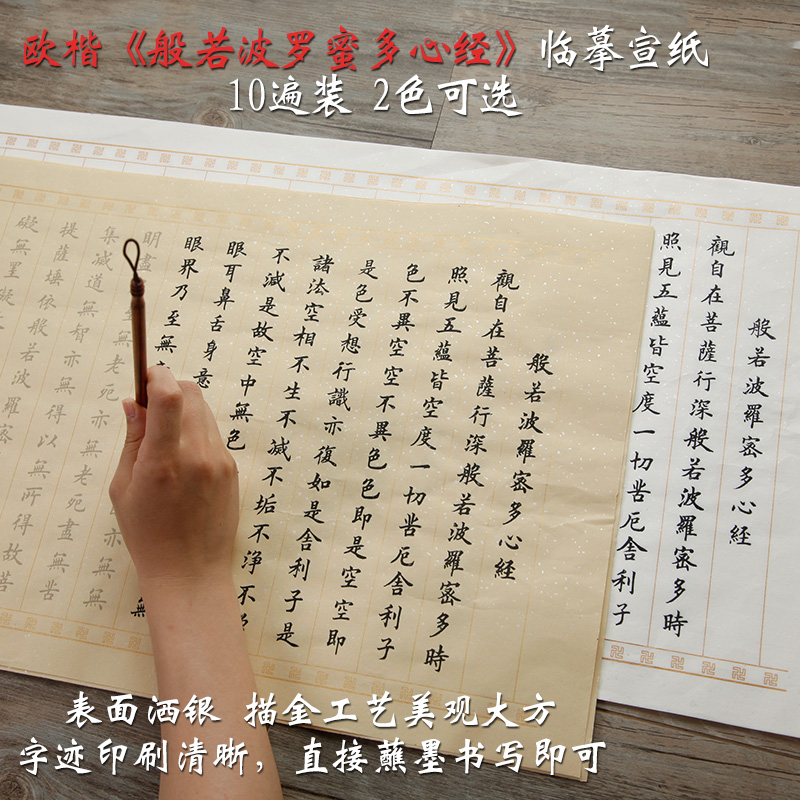 欧楷《般若波罗蜜多心经》临摹宣纸
10遍装 2色可选
般若波羅密多心經
觀自在菩薩行深般若波羅密多時
照見五蘊皆空度一切苦厄舍利子
般若波羅密多心經
觀自在菩薩行深般若波羅密多時
照見五蘊皆空度一切苦厄舍利子
色不異空空不異色色即是空空即
是色受想行識亦復如是舍利子是
諸法空相不生不滅不垢不淨不
不減是故空中無色
眼耳鼻舌身意
眼界乃至無
明盡 至無老死亦無老死盡無苦
集滅道無智亦無得以無所得故菩
提薩埵依般若波羅密
礙無罣礙
表面洒银 描金工艺美观大方
字迹印刷清晰，直接蘸墨书写即可